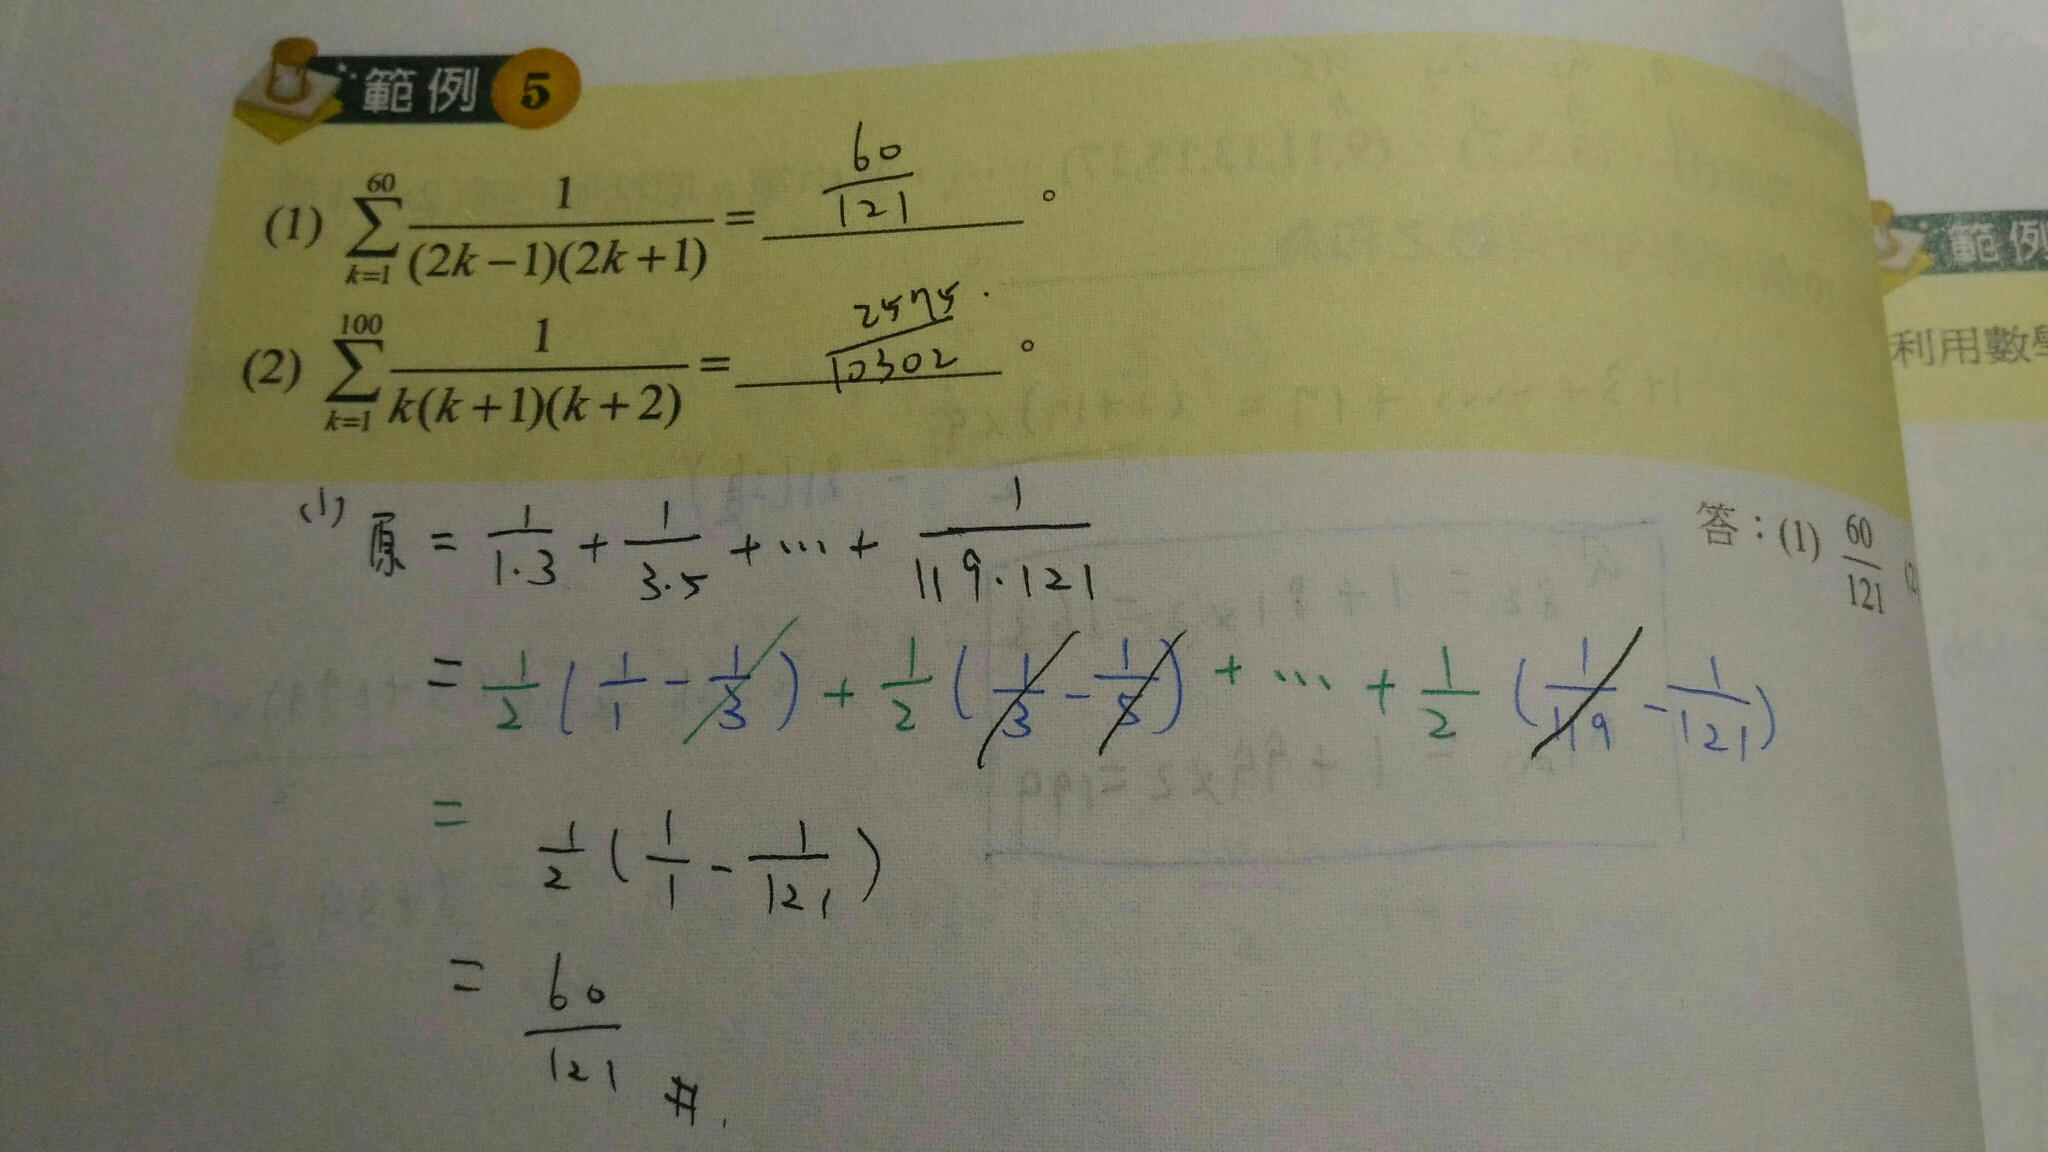 範例 5
(1) \sum_{k=1}^{60} \frac{1}{(2k-1)(2k+1)} = \frac{60}{121} 。
(2) \sum_{k=1}^{100} \frac{1}{k(k+1)(k+2)} = \frac{2575}{10302} 。
答：(1) \frac{60}{121} (2
(1) 原 = \frac{1}{1·3} + \frac{1}{3·5} + … + \frac{1}{119·121}
= \frac{1}{2}(\frac{1}{1} - \frac{1}{3}) + \frac{1}{2}(\frac{1}{3} - \frac{1}{5}) + … + \frac{1}{2}(\frac{1}{119} - \frac{1}{121})
= \frac{1}{2}(\frac{1}{1} - \frac{1}{121})
= \frac{60}{121} #.
範例
利用數學